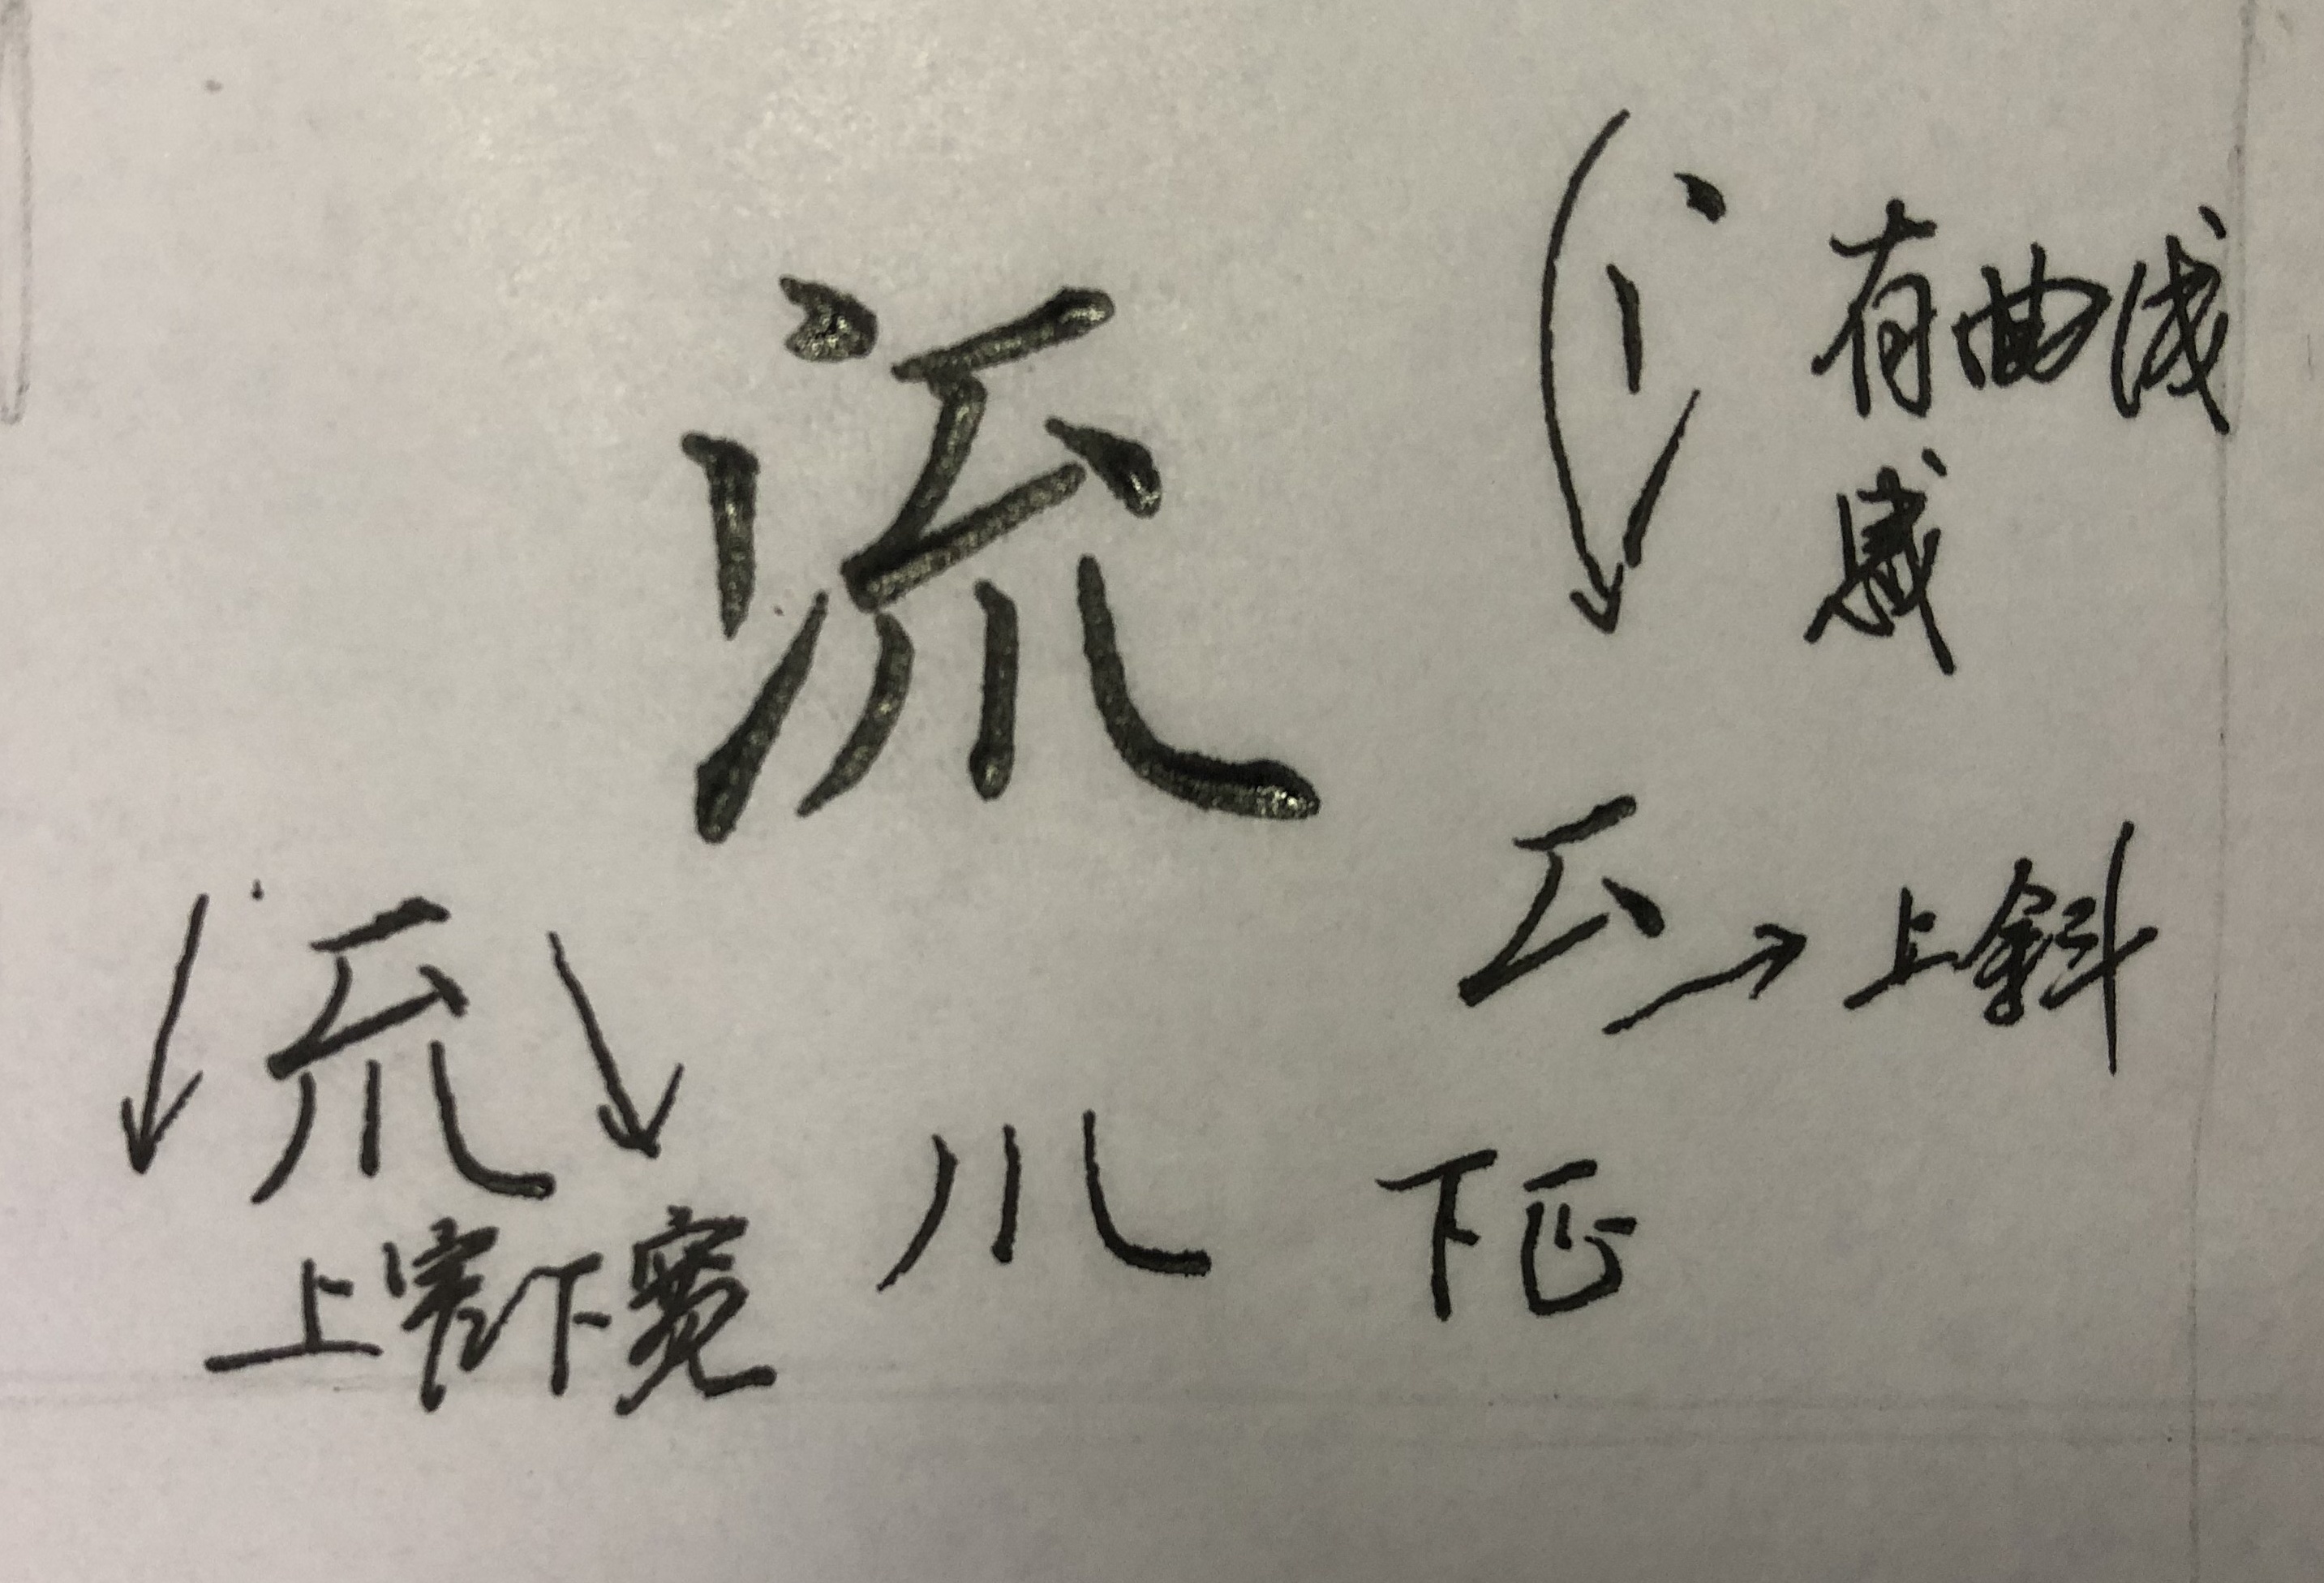 流
有曲线
感
上斜
下正
上窄下宽